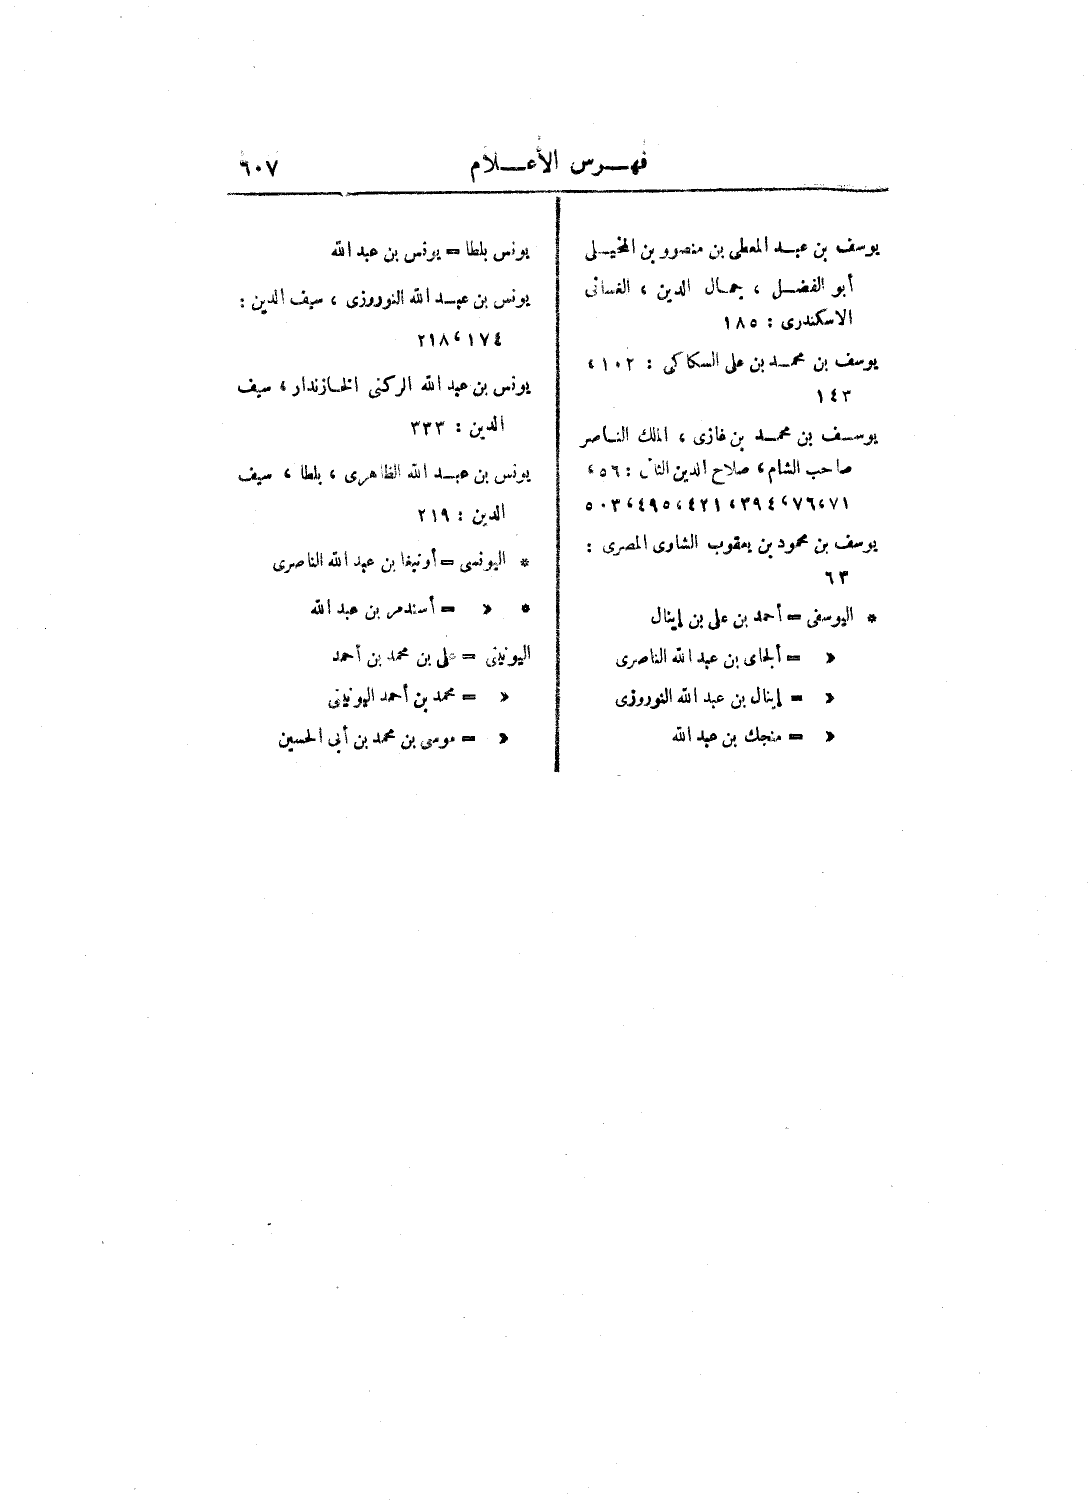 فهرس الأعلام
٦٠٧
يوسف بن عبد المعطى بن منصور بن المخيلى
أبو الفضل ، جمال الدين ، الغسانى
الاسكندرى : ١٨٥
يوسف بن محمد بن على السكاكى : ١٠٢ ،
١٤٣
يوسف بن محمد بن غازى ، الملك الناصر
صاحب الشام ، صلاح الدين الثانى : ٥٦ ،
٧١ ، ٧٦ ، ٣٩٤ ، ٤٢١ ، ٤٩٥ ، ٥٠٣
يوسف بن محمود بن يعقوب الشاوى المصرى :
٦٣
* اليوسفى = أحمد بن على بن إينال
» = ألجاى بن عبد الله الناصرى
» = إينال بن عبد الله النوروزى
» = منجك بن عبد الله
يونس بلطا = يونس بن عبد الله
يونس بن عبد الله النوروزى ، سيف الدين :
١٧٤ ، ٢١٨
يونس بن عبد الله الركنى الخازندار ، سيف
الدين : ٣٣٣
يونس بن عبد الله الظاهرى ، بلطا ، سيف
الدين : ٢١٩
* اليونسى = أونبغا بن عبد الله الناصرى
* » = أسندمر بن عبد الله
اليونينى = على بن محمد بن أحمد
» = محمد بن أحمد اليونينى
» = موسى بن محمد بن أبى الحسين